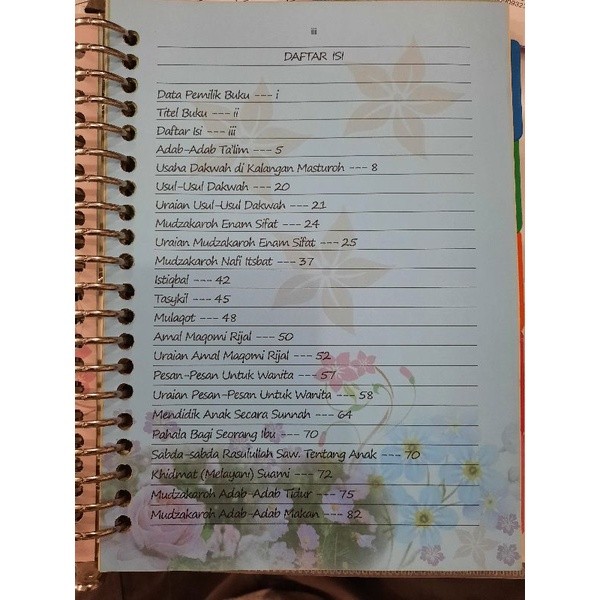 iii
DAFTAR ISI
Data Pemilik Buku --- i
Titel Buku --- ii
Daftar Isi --- iii
Adab-Adab Ta'lim --- 5
Usaha Dakwah di Kalangan Masturoh --- 8
Usul-Usul Dakwah --- 20
Uraian Usul-Usul Dakwah --- 21
Mudzakaroh Enam Sifat --- 24
Uraian Mudzakaroh Enam Sifat --- 25
Mudzakaroh Nafi Itsbat --- 37
Istiqbal --- 42
Tasykil --- 45
Mulaqot --- 48
Amal Maqomi Rijal --- 50
Uraian Amal Maqomi Rijal --- 52
Pesan-Pesan Untuk Wanita --- 57
Uraian Pesan-Pesan Untuk Wanita --- 58
Mendidik Anak Secara Sunnah --- 64
Pahala Bagi Seorang Ibu --- 70
Sabda-sabda Rasulullah Saw. Tentang Anak --- 70
Khidmat (Melayani) Suami --- 72
Mudzakaroh Adab-Adab Tidur --- 75
Mudzakaroh Adab-Adab Makan --- 82